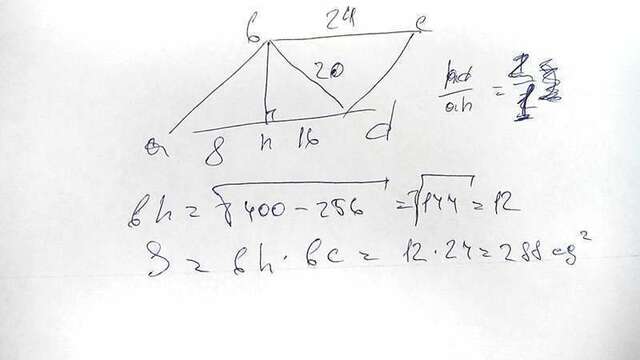 b 24 c
20
a 8 h 16 d
hd/ah = 2/1
bh = √400 - 256 = √144 = 12
S = bh · bc = 12 · 24 = 288 eg²